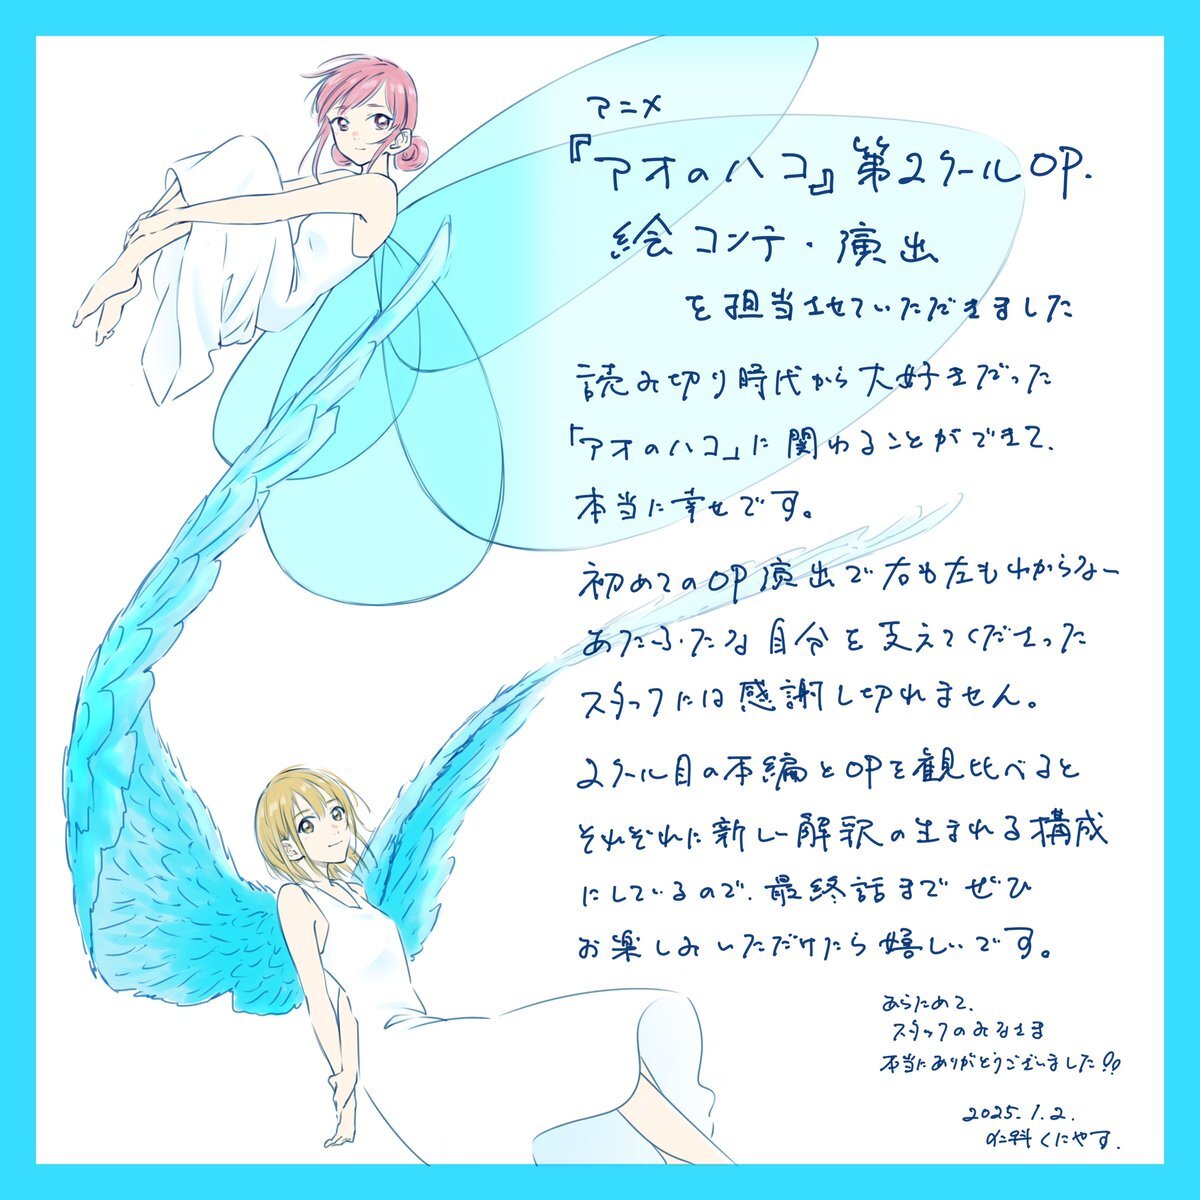 アニメ
『アオのハコ』第2クールOP.
絵コンテ・演出
を担当させていただきました
読み切り時代から大好きだった
「アオのハコ」に関わることができて、
本当に幸せです。
初めてのOP演出で右も左もわからない
あたふたな自分を支えてくださった
スタッフには感謝し切れません。
2クール目の本編とOPを観比べると
それぞれに新しい解釈の生まれる構成
にしているので、最終話までぜひ
お楽しみいただけたら嬉しいです。
あらためて、
スタッフのみなさま
本当にありがとうございました!!
2025.1.2.
仁科くにやす.